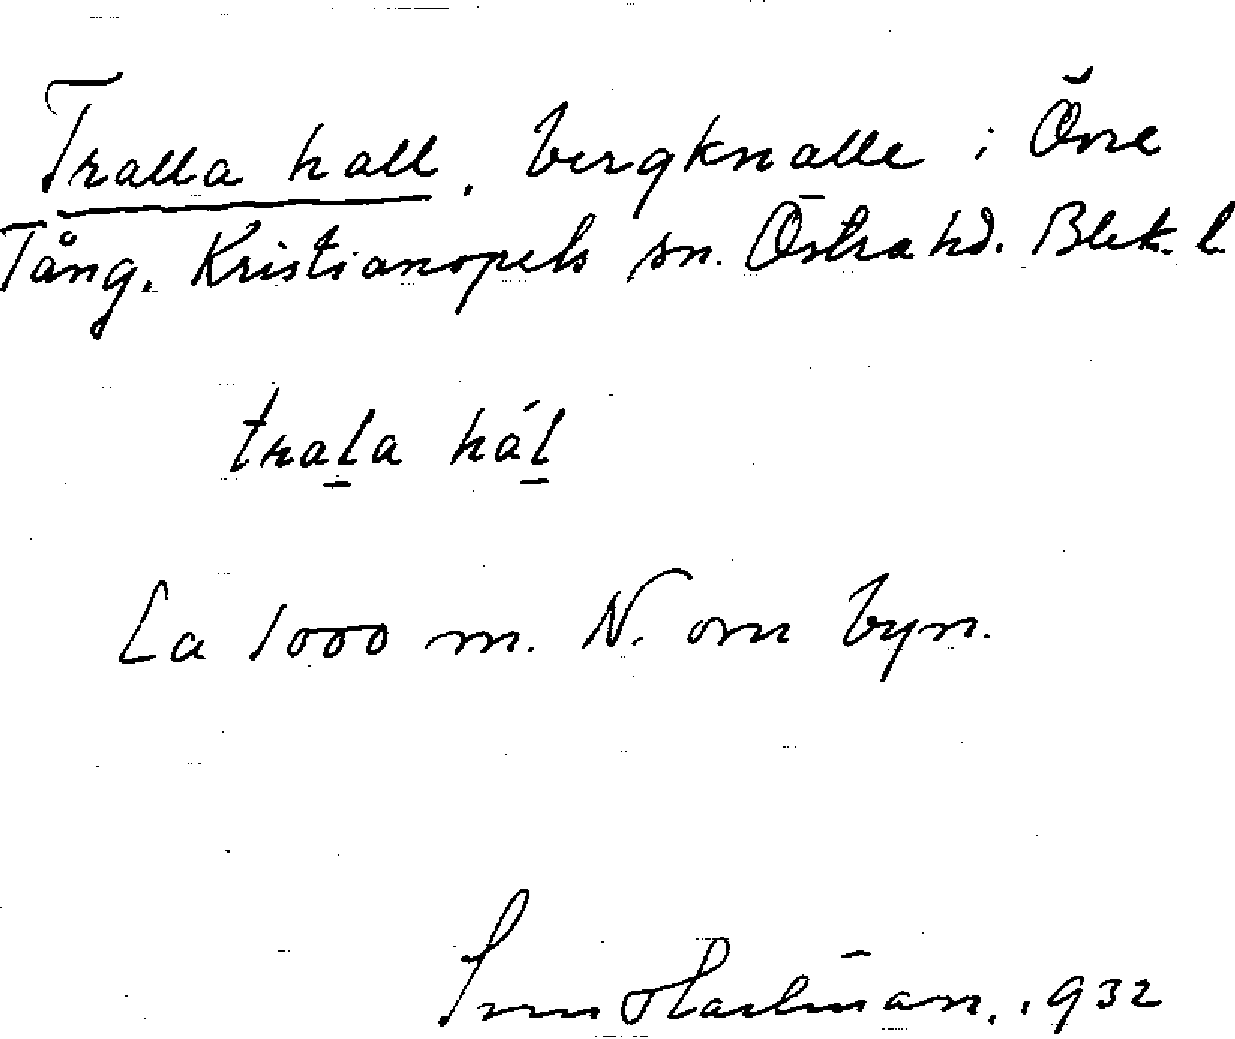 Tralla hall, bergknalle i Övre
Tång. Kristianopels sn. Östra hd. Blek. l
trala hál
Ca 1000 m. N. om byn.
Sven Hallman. 1932